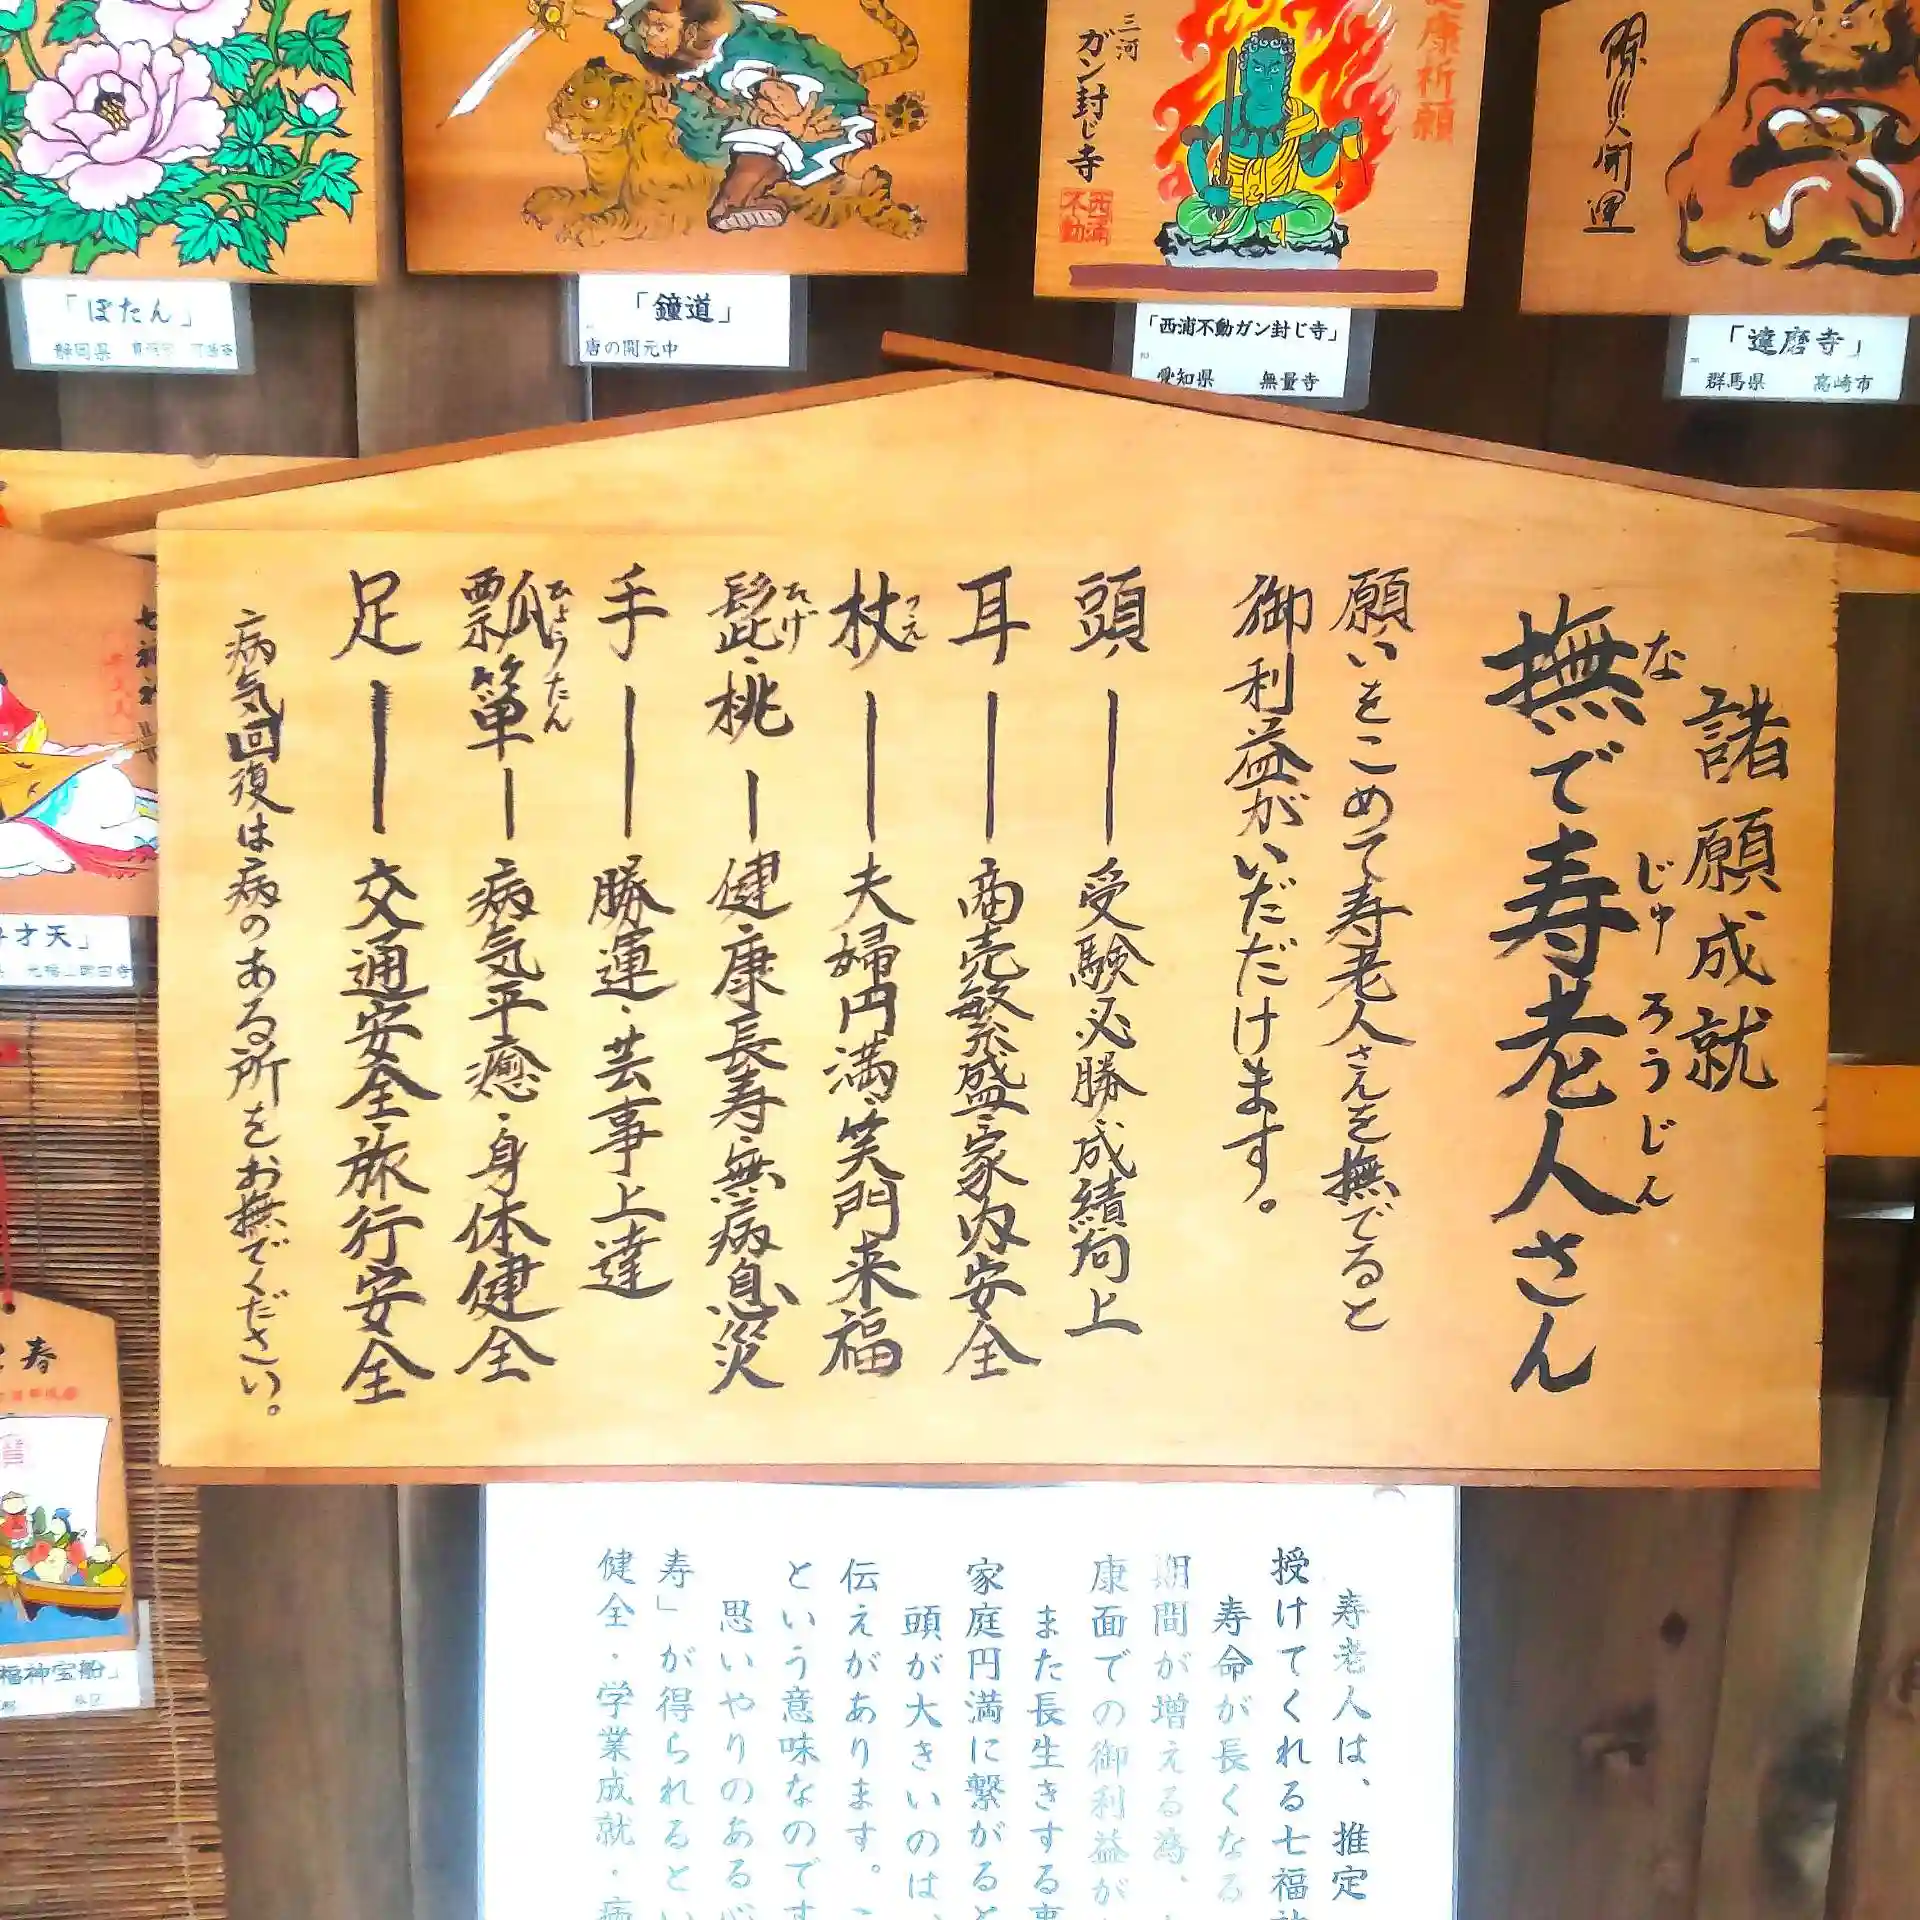 三河
ガン封じ寺
西浦
不動
健康祈願
「ぼたん」
静岡県
「鐘道」
唐の開元中
「西浦不動ガン封じ寺」
愛知県 無量寺
「達磨寺」
群馬県 高崎市
諸願成就
撫で寿老人さん
な じゅ ろう じん
願いをこめて寿老人さんを撫でると
御利益がいただけます。
頭―受験必勝・成績向上
耳―商売繁盛・家内安全
杖―夫婦円満・笑門来福
つえ
髭・桃―健康長寿・無病息災
ひげ
手―勝運・芸事上達
瓢箪―病気平癒・身体健全
ひょうたん
足―交通安全・旅行安全
病気回復は病のある所をお撫でください。
才天」
福神宝船」
寿老人は、推定
授けてくれる七福
寿命が長くなる
期間が増える為、
康面での御利益が
また長生きする事
家庭円満に繋がると
頭が大きいのは、
伝えがあります。こ
という意味なのです
思いやりのある心
寿」が得られるとい
健全・学業成就・病